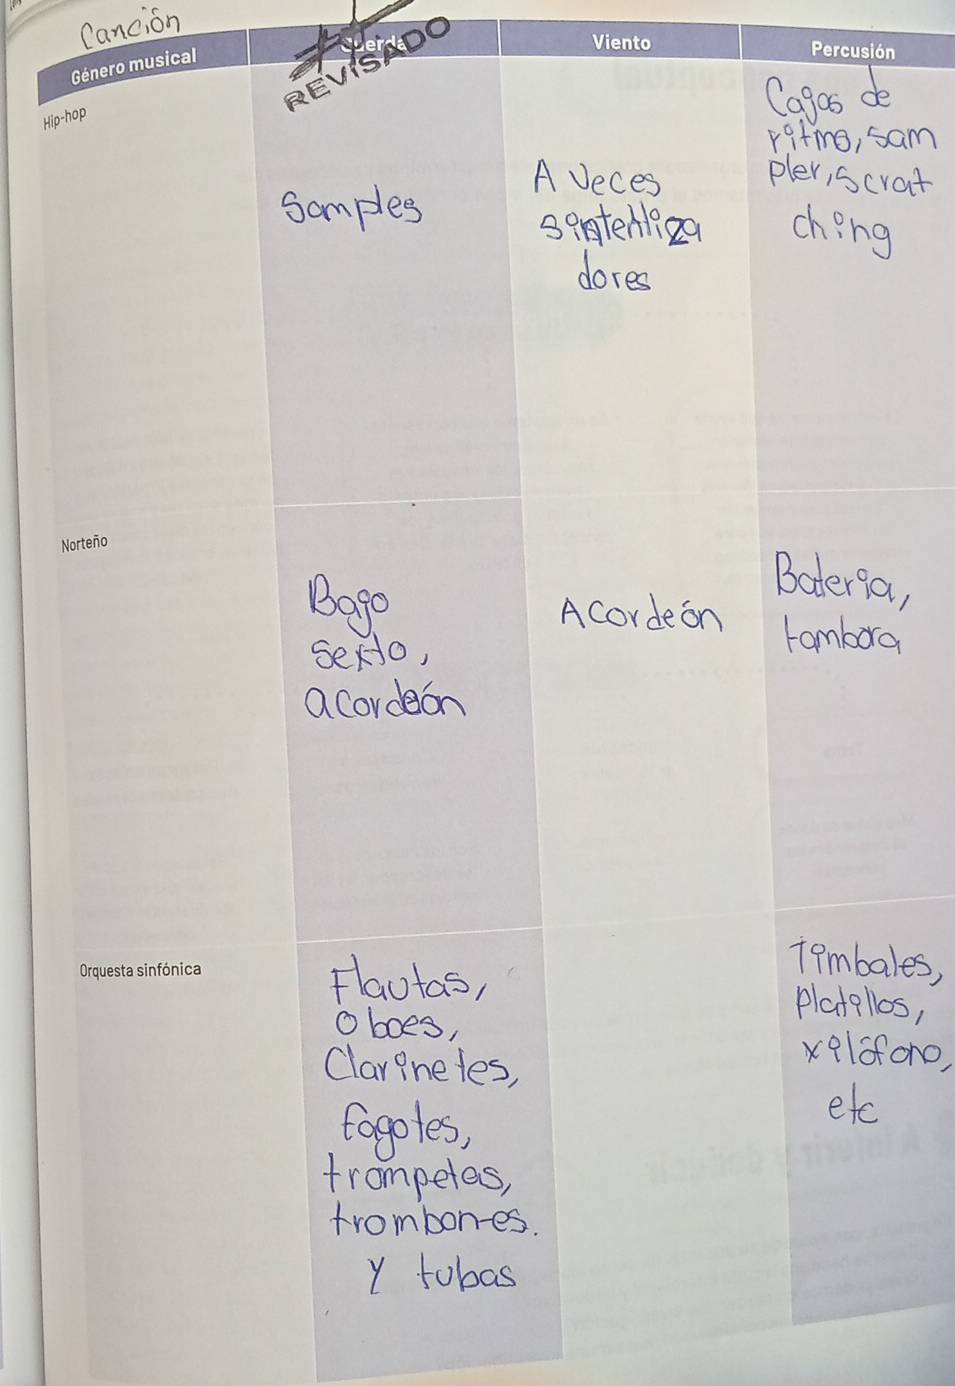 Canción
Género musical
Cuerda
Viento
Percusión
REVISADO
Hip-hop
Samples
A veces
sintentiza
dores
Cajas de
ritmo, sam
pler, scrat
ching
Norteño
Bajo
sexto,
acordeón
Acordeón
Bateria,
tambora
Orquesta sinfónica
Flautas,
Oboes,
Clarinetes,
fagotes,
trompetas,
trombones.
Y tubas
Timbales,
Platillos,
xilófono,
etc